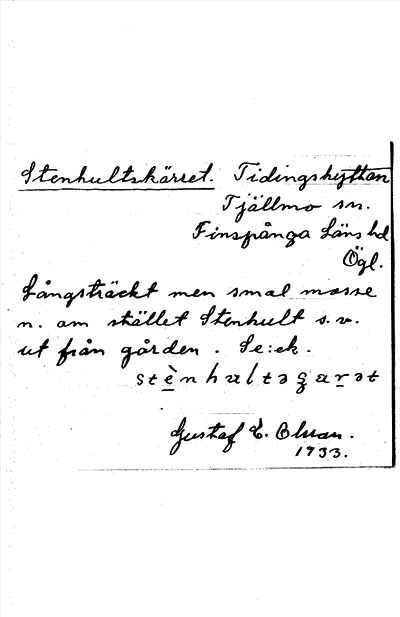 Stenhultskärret. Tidingshyttan
Tjällmo sn.
Finspånga Läns hd
Ögl.
Långsträckt men smal mosse
n. om stället Stenhult s.v.
ut från gården. Se: ek.
Gustaf E.
1733.